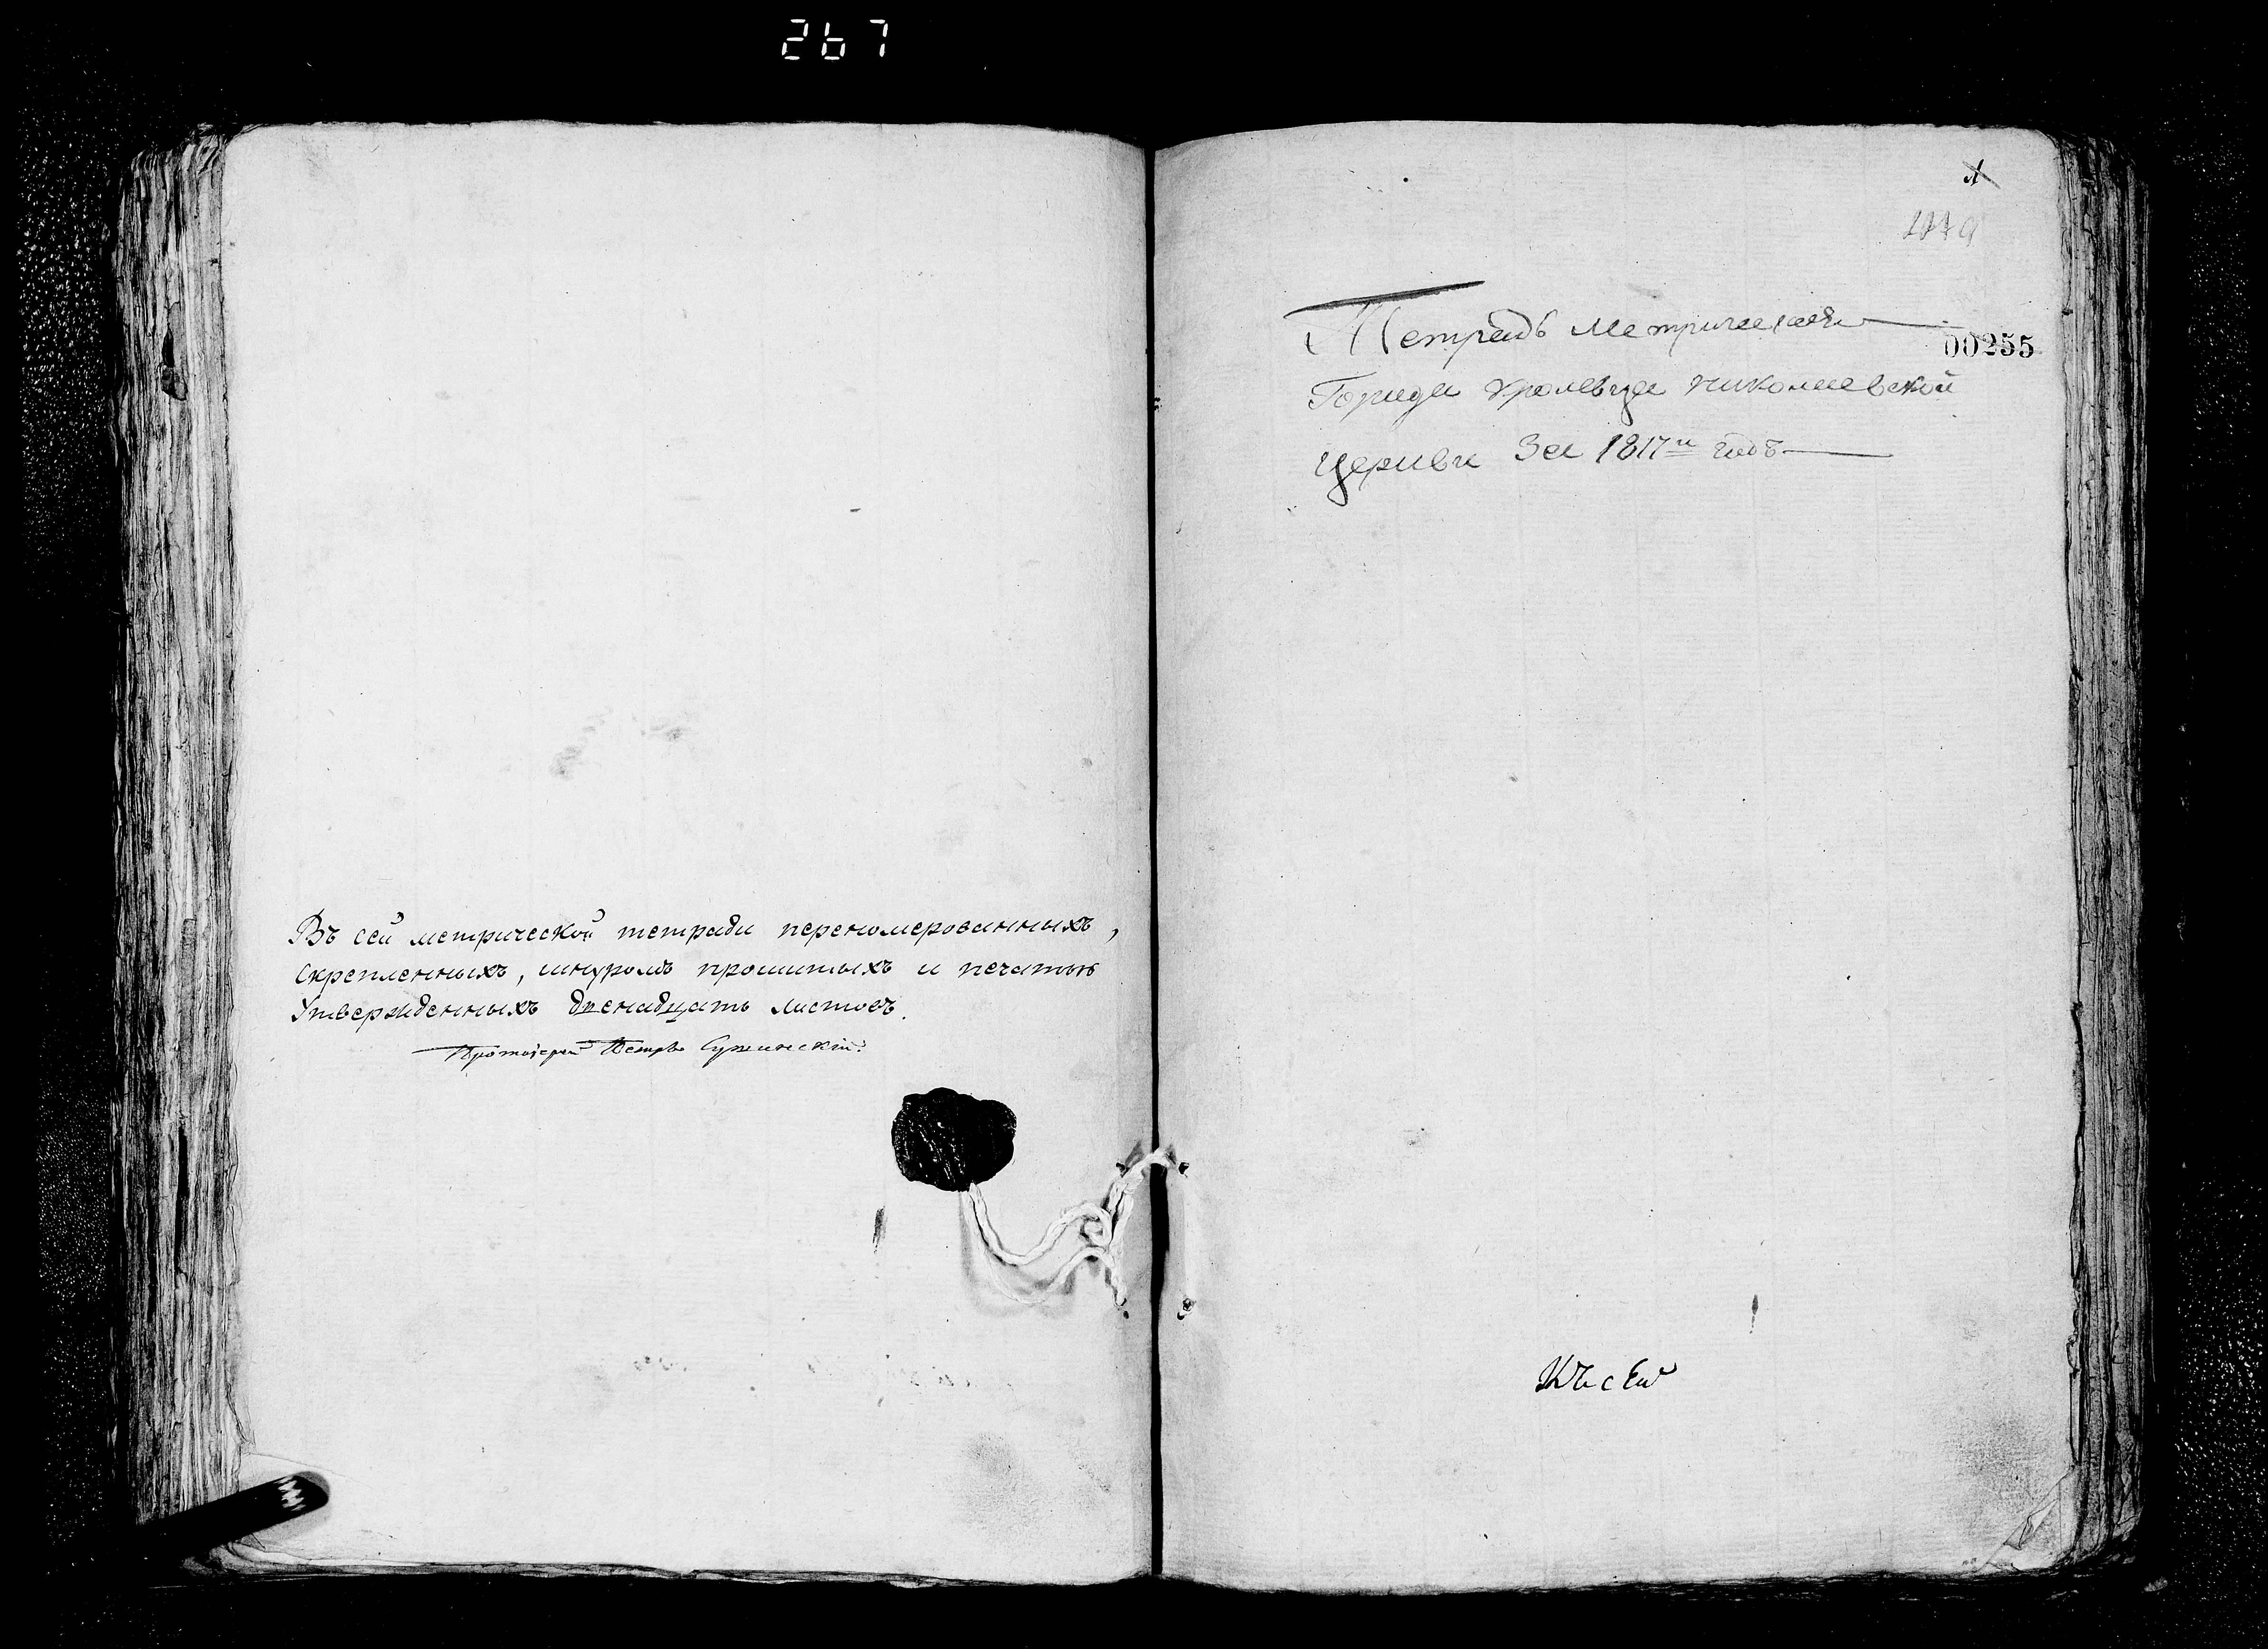 267
Въ сей метрической тетради перепомерованныхъ,
скрепленныхъ, шнуромъ прошитыхъ и печатью
Утвержденныхъ двенадцать листовъ.
Протоіерей Петръ
1
Тетрадь метрическая
00255
Города Кролевца Николаевской
церкви За 1817й годъ
Къ сей